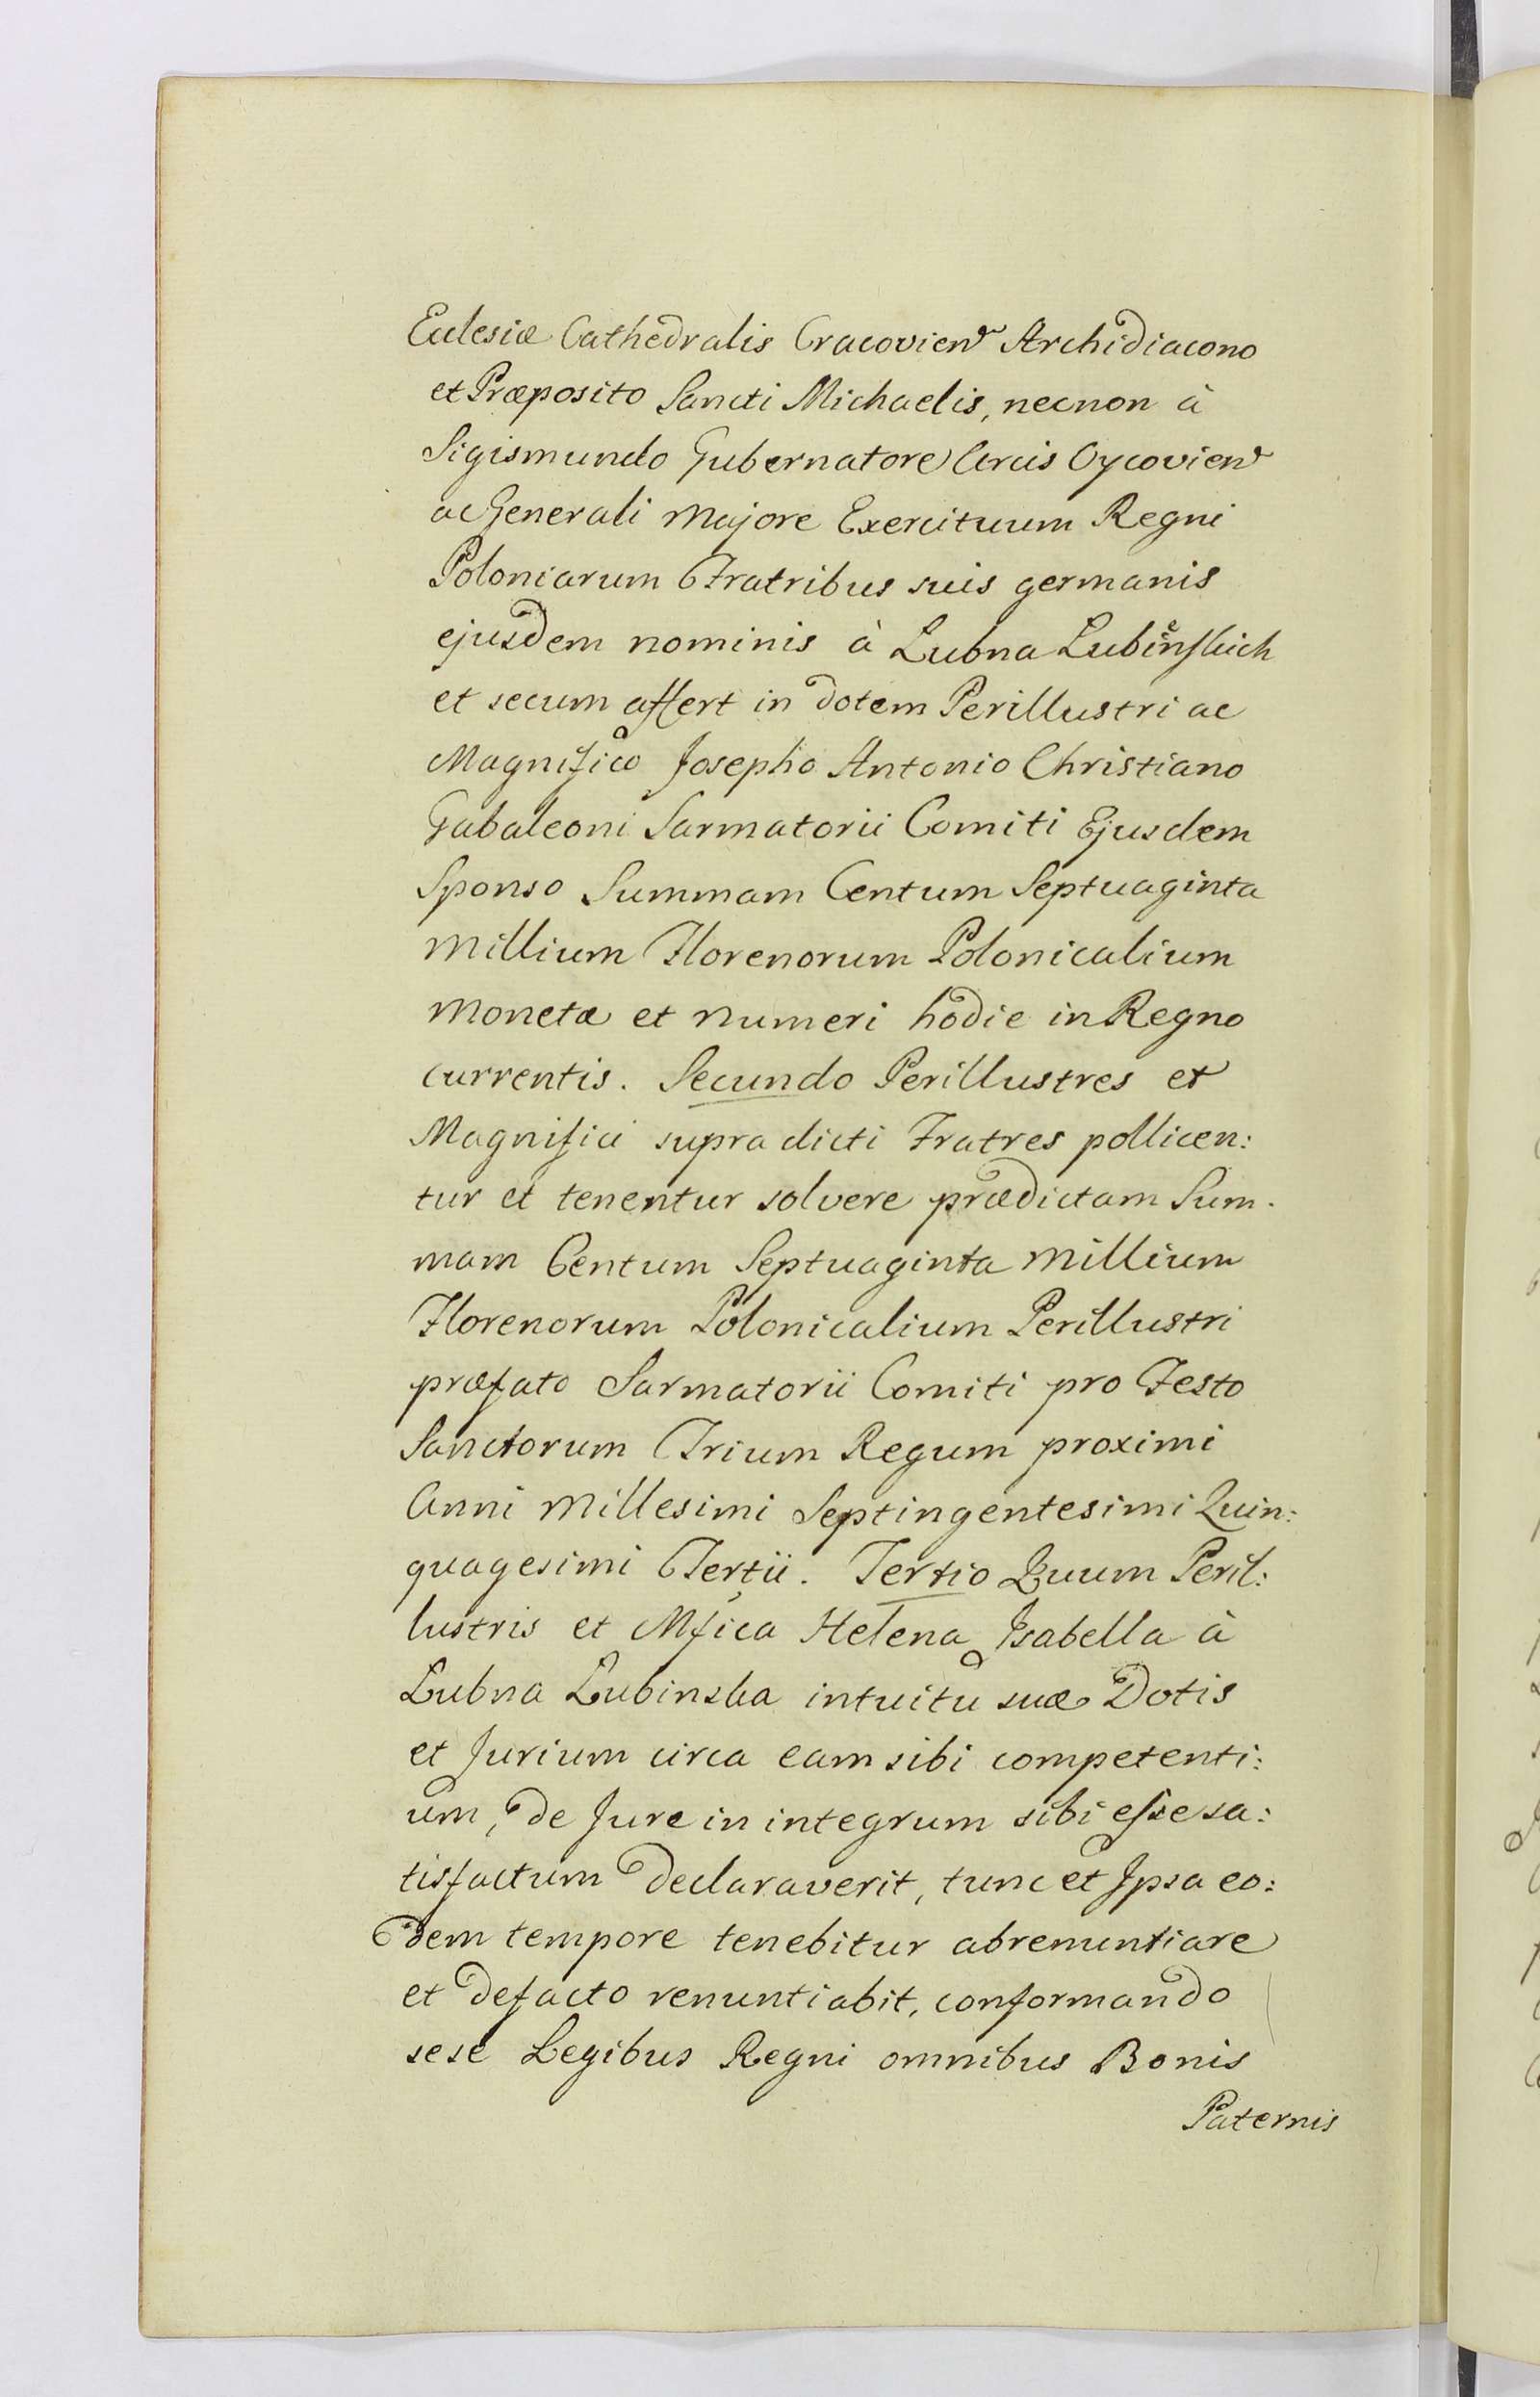 Eclesiæ Cathedralis Cracovien Archidiacono
et Præposito Sancti Michaelis, necnon à
Sigismundo Gubernatore Arcis Oycovien
ac Generali Majore Exercituum Regni
Poloniarum Fratribus suis germanis
ejusdem nominis à Łubna Łubińskich
et secum affert in dotem Perillustri ac
Magnifico Josepho Antonio Christiano
Gabaleoni Sarmatorii Comiti Ejusdem
Sponso Summam Centum Septuaginta
Millium Florenorum Polonicalium
Monetæ et Numeri hodie in Regno
currentis. Secundo Perillustres et
Magnifici supra dicti Fratres pollicen:
tur et tenentur solvere prædictam Sum.
mam Centum Septuaginta Millium
Florenorum Polonicalium Perillustri
præfato Sarmatorii Comiti pro Festo
Sanctorum Trium Regum proximi
Anni Millesimi Septingentesimi Quin:
quagesimi Tertii. Tertio Quum Peril:
lustris et Mfica Helena Isabella à
Łubna Łubinska intuitu suæ Dotis
et Jurium circa eam sibi competenti:
um, de Jure in integrum sibi esse sa:
tisfactum declaraverit, tunc et Ipsa eo:
dem tempore tenebitur abrenuntiare
et defacto renuntiabit, conformando
sese Legibus Regni omnibus Bonis
Paternis